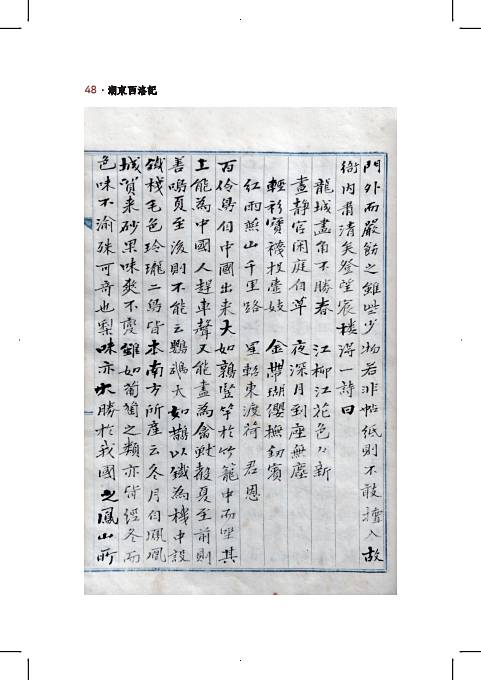 48 · 潮東西洛記
門外而嚴飭之雖些少物若非帖紙則不敢擅入故
衙內肅清矣登望宸樓得一詩曰
龍城畫角不勝春 江柳江花色色新
晝靜官閑庭自草 夜深月到座無塵
輕衫寶襪杖虛妓 金帶瑚纓撫劒賓
紅雨燕山千里路 星軺東渡荷 君恩
百伶鳥自中國出來大如鶉豎竿於竹籠中而坐其
上能為中國人趕車聲又能盡為禽獸聲夏至前則
善鳴夏至後則不能云鸚鵡大如鵲以鐵為機中設
鐵棧毛色玲瓏二鳥皆本南方所產云冬月自鳳凰
城貿來砂果味爽不變雖如葡萄之類亦皆經冬而
色味不渝殊可奇也梨味亦大勝於我國之鳳山所